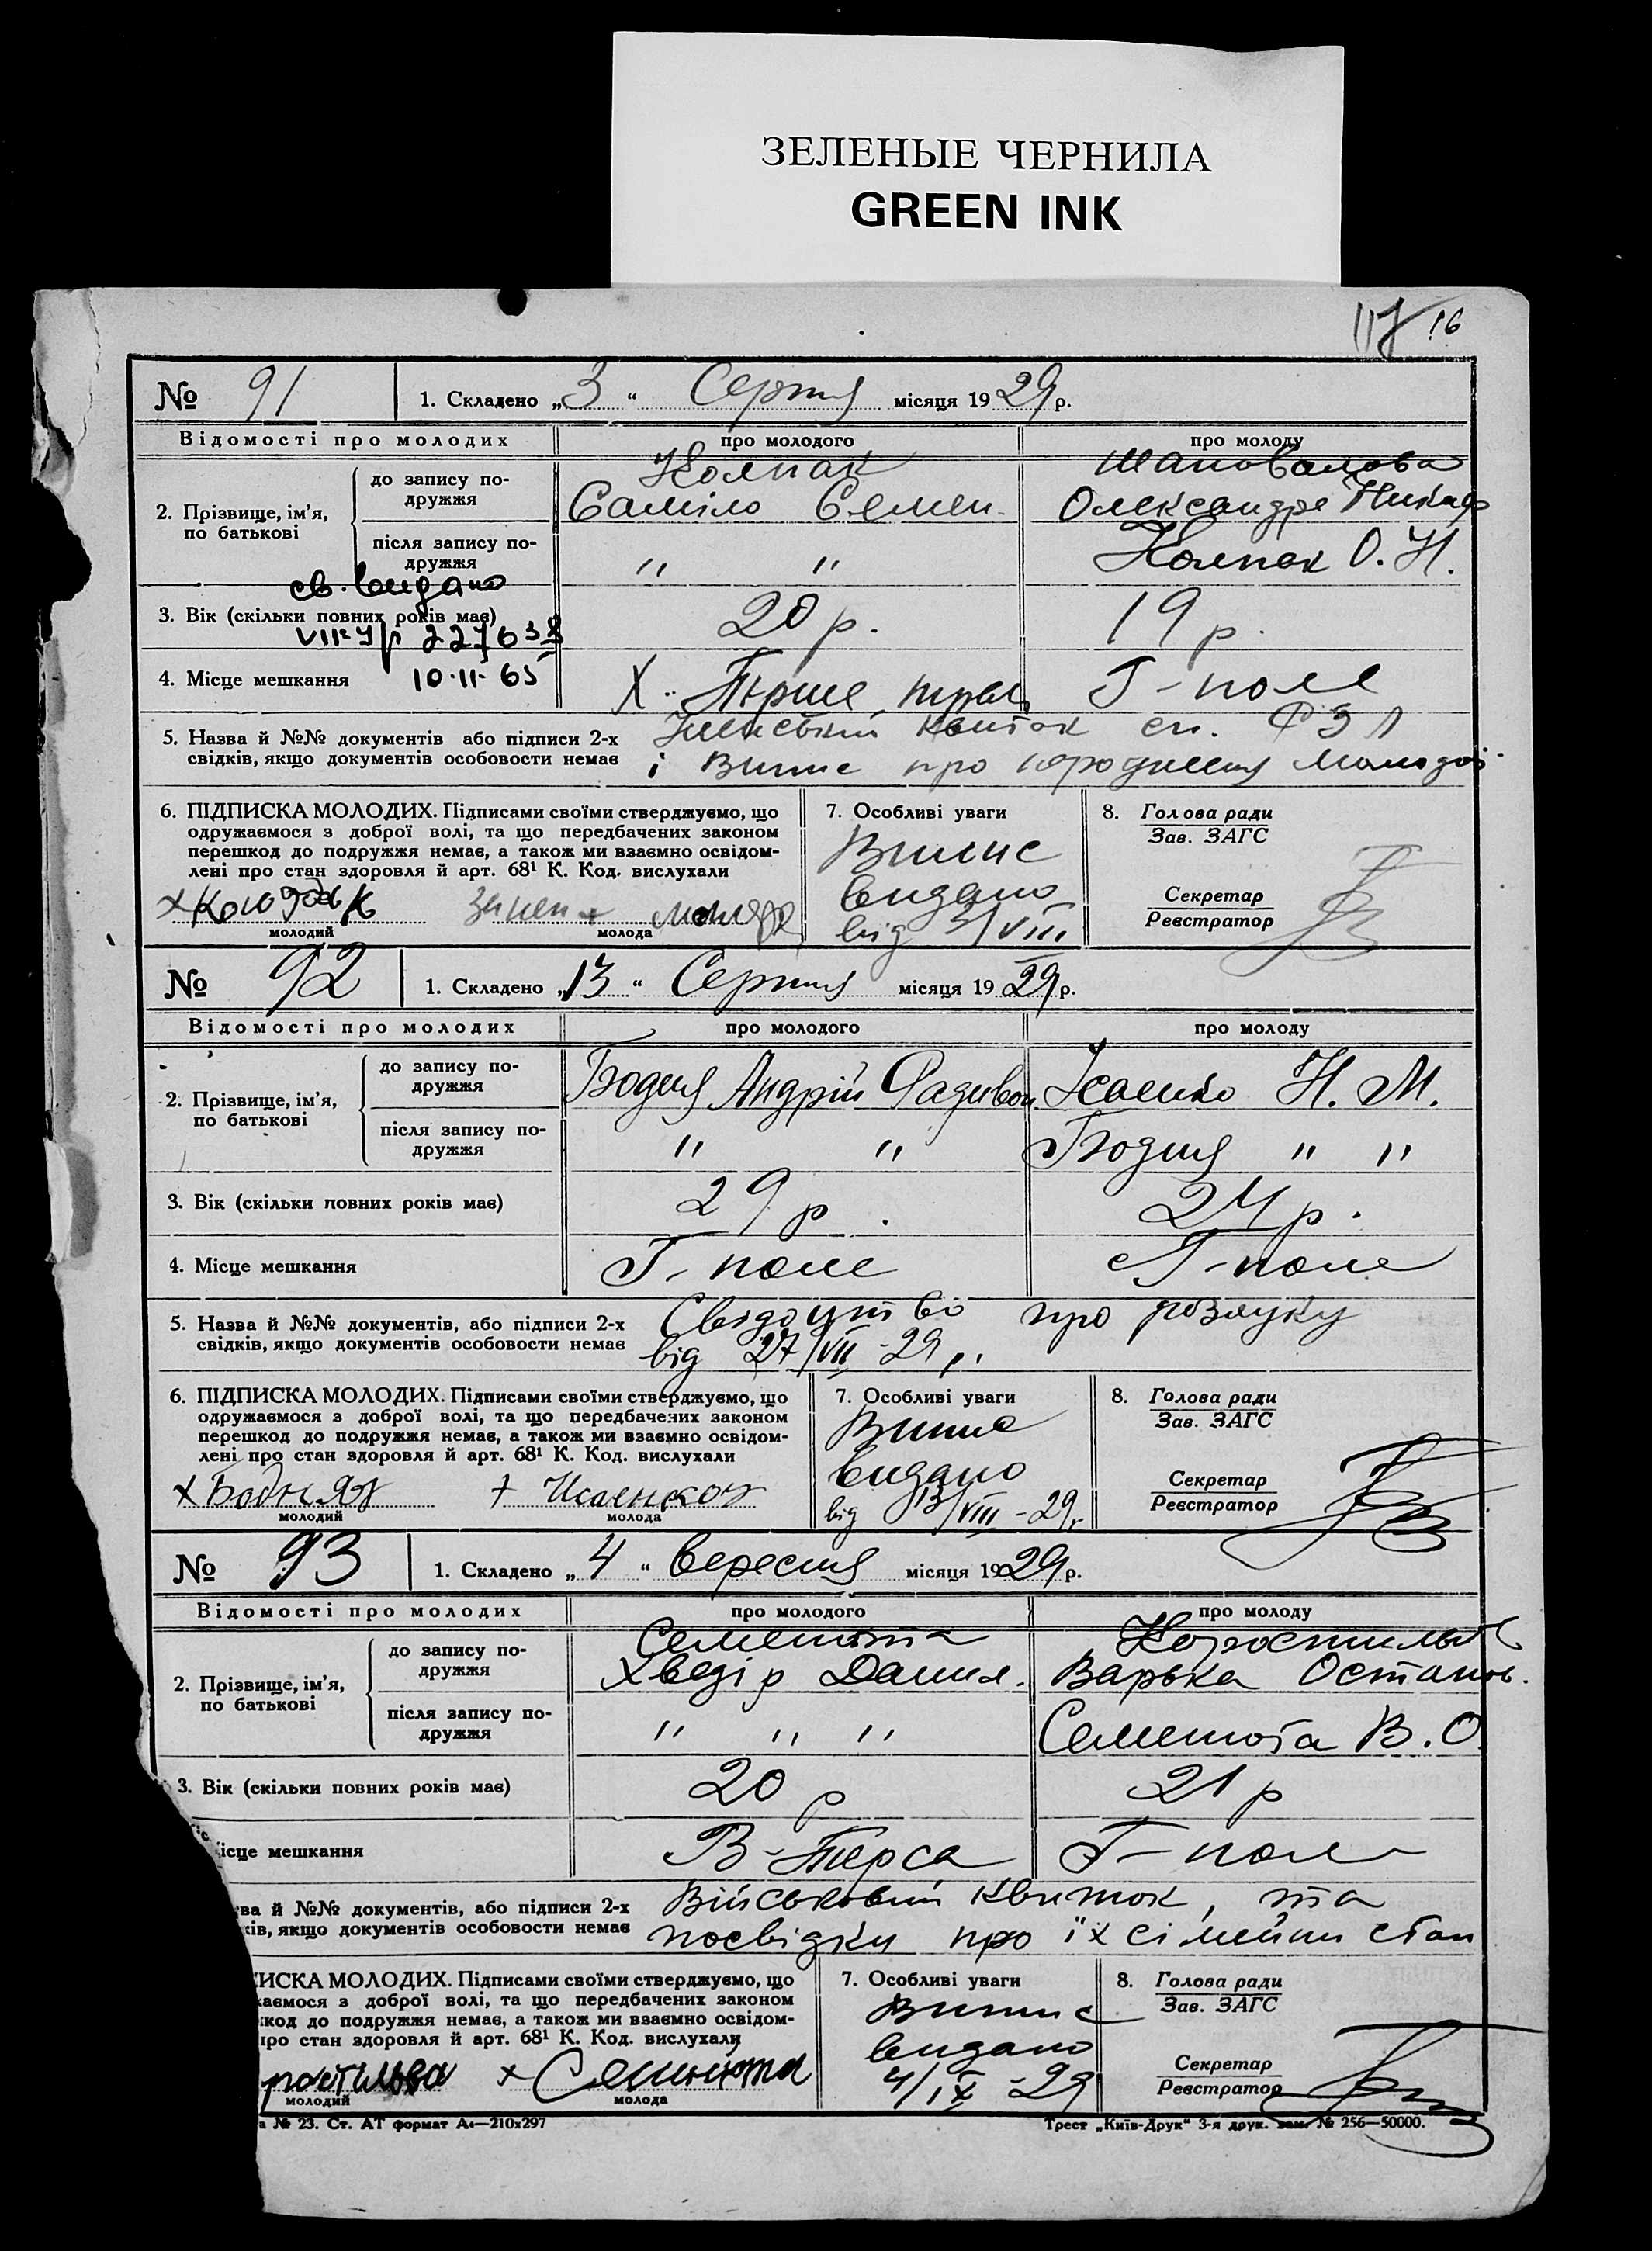 ЗЕЛЕНЫЕ ЧЕРНИЛА
GREEN INK
117 16
№ 91 1. Складено „3“ Серпня місяця 1929 р.
Відомості про молодих про молодого про молоду
2. Прізвище, ім'я, по батькові
до запису подружжя Колпак Шаповалова
Саміло Семен. Олександра Никиф
після запису подружжя " " Колпак О. Н.
св. видано
3. Вік (скільки повних років має) 20 р. 19 р.
227638
4. Місце мешкання 10-11-65 Х. Перше трав Г-поле
5. Назва й №№ документів або підписи 2-х квиток сп.
свідків, якщо документів особовости немає і Випис про народження молодої
6. ПІДПИСКА МОЛОДИХ. Підписами своїми стверджуємо, що
одружаємося з доброї волі, та що передбачених законом
перешкод до подружжя немає, а також ми взаємно освідом-
лені про стан здоровля й арт. 68¹ К. Код. вислухали
молодий молода
7. Особливі уваги
Випис
видано
від 3/VIII
8. Голова ради
Зав. ЗАГС
Секретар
Реєстратор
№ 92 1. Складено „13“ Серпня місяця 1929 р.
Відомості про молодих про молодого про молоду
2. Прізвище, ім'я, по батькові
до запису подружжя Бодня Андрій Радивон Ісаенко Н. М.
після запису подружжя " " Бодня " "
3. Вік (скільки повних років має) 29 р. 24 р.
4. Місце мешкання Г-поле Г-поле
5. Назва й №№ документів, або підписи 2-х Свідоцтво про розлуку
свідків, якщо документів особовости немає від 27/VII-29 р.
6. ПІДПИСКА МОЛОДИХ. Підписами своїми стверджуємо, що
одружаємося з доброї волі, та що передбачених законом
перешкод до подружжя немає, а також ми взаємно освідом-
лені про стан здоровля й арт. 68¹ К. Код. вислухали
молодий молода
7. Особливі уваги
Випис
видано
від 13/VIII-29 р.
8. Голова ради
Зав. ЗАГС
Секретар
Реєстратор
№ 93 1. Складено „4“ вересня місяця 1929 р.
Відомості про молодих про молодого про молоду
2. Прізвище, ім'я, по батькові
до запису подружжя Семенюта
Хведір Данил. Варька Остапов.
після запису подружжя " " " Семенюта В. О.
3. Вік (скільки повних років має) 20 р 21 р
ісце мешкання В-Терса Г-поле
ва й №№ документів, або підписи 2-х Військовий квиток, та
ків, якщо документів особовости немає посвідки про їх сімейни стан
ИСКА МОЛОДИХ. Підписами своїми стверджуємо, що
жаємося з доброї волі, та що передбачених законом
код до подружжя немає, а також ми взаємно освідом-
про стан здоровля й арт. 68¹ К. Код. вислухали
ростильва х Семенюта
молодий молода
7. Особливі уваги
Випис
видано
4/IX-29
8. Голова ради
Зав. ЗАГС
Секретар
Реєстратор
а № 23. Ст. АТ формат А₄—210х297 Трест „Київ-Друк“ 3-я друк. зам. № 256—50000.